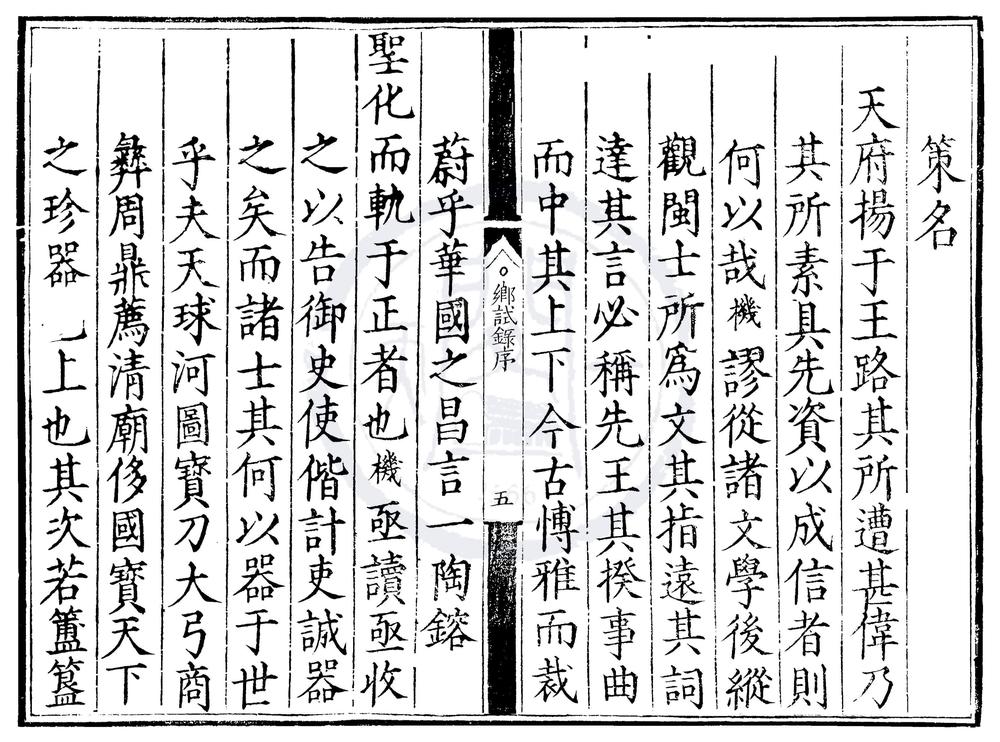 策名
天府揚于王路其所遭甚偉乃
其所素具先資以成信者則
何以哉機謬從諸文學後縱
觀閩士所為文其指遠其詞
達其言必稱先王其揆事曲
而中其上下今古愽雅而裁
鄉試錄序
五
蔚乎華國之昌言一陶鎔
聖化而軌于正者也機亟讀亟收
之以告御史使偕計吏誠器
之矣而諸士其何以器于世
乎夫天球河圖寶刀大弓商
彝周鼎薦清廟侈國寶天下
之珍器 上也其次若簠簋